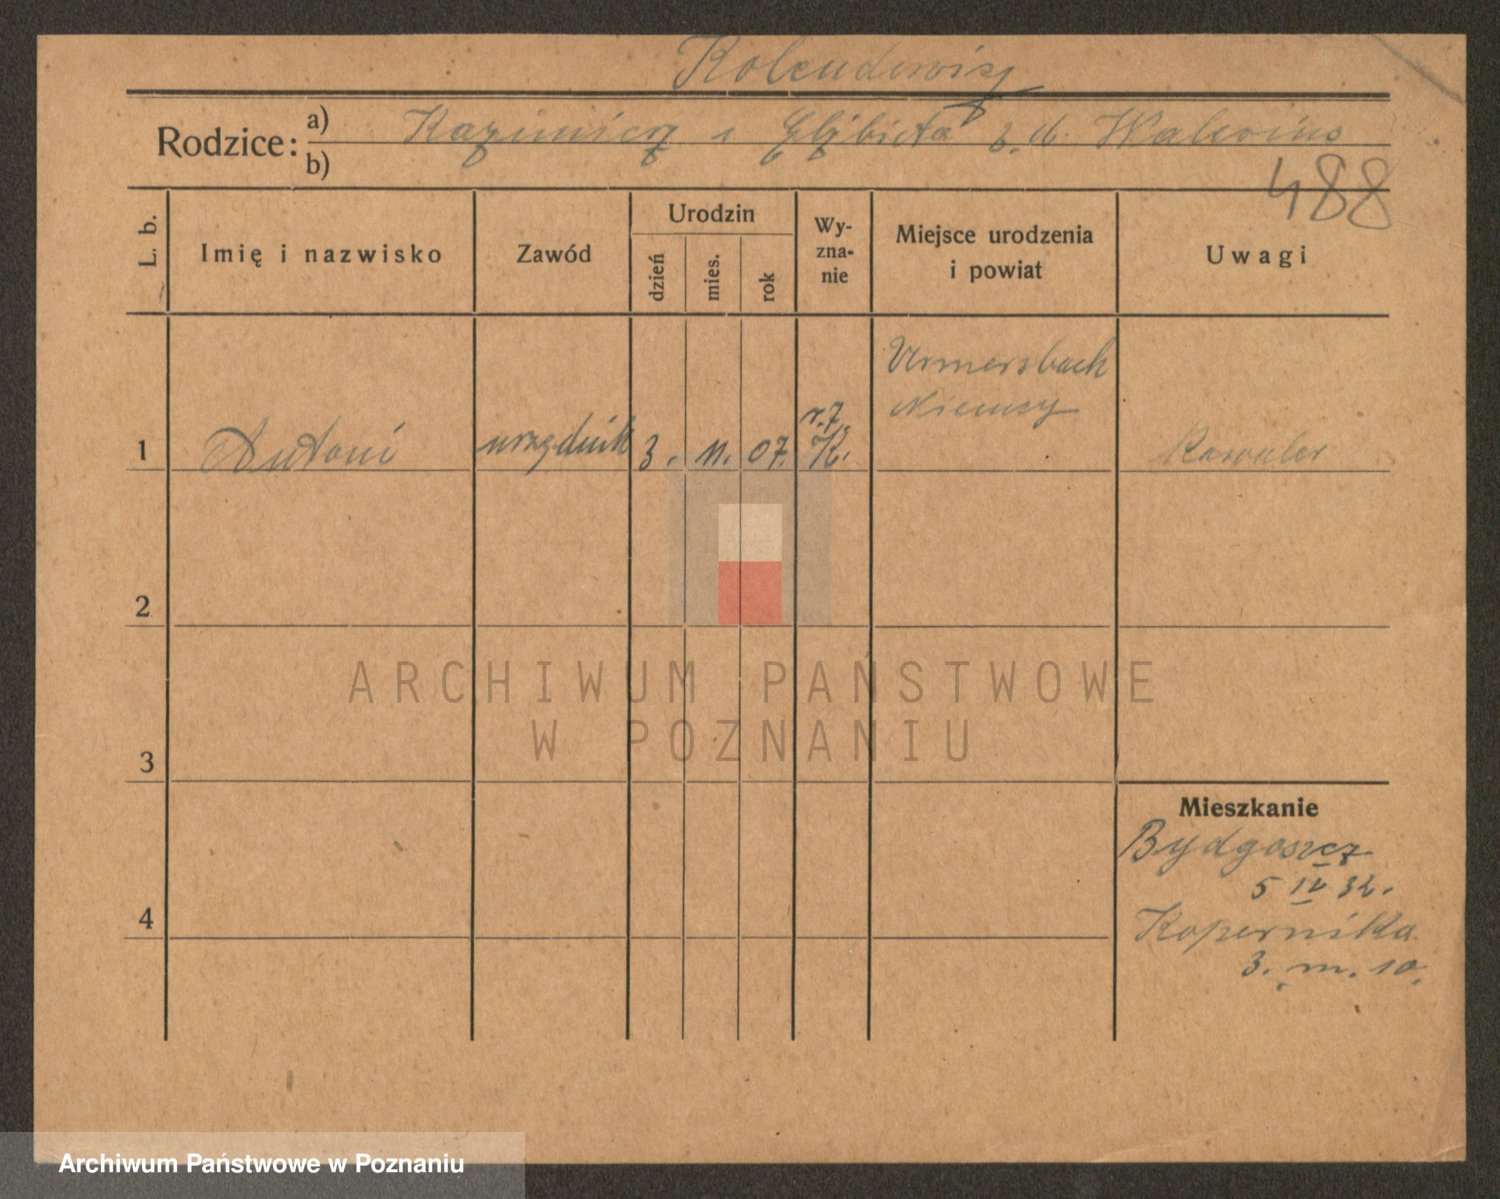 Kolendowicz
Rodzice: a) Kazimierz i Elżbieta z d.
b)
488
L. b.
Imię i nazwisko
Zawód
Urodzin
dzień
mies.
rok
Wy-
zna-
nie
Miejsce urodzenia
i powiat
Uwagi
1 Antoni urzędnik 3. 11. 07. r. K. Urmersbach
Niemcy
Kawaler
2
3
4
Mieszkanie
Bydgoszcz
5 IV 32.
Kopernika
3. m. 10.
ARCHIWUM PAŃSTWOWE
W POZNANIU
Archiwum Państwowe w Poznaniu